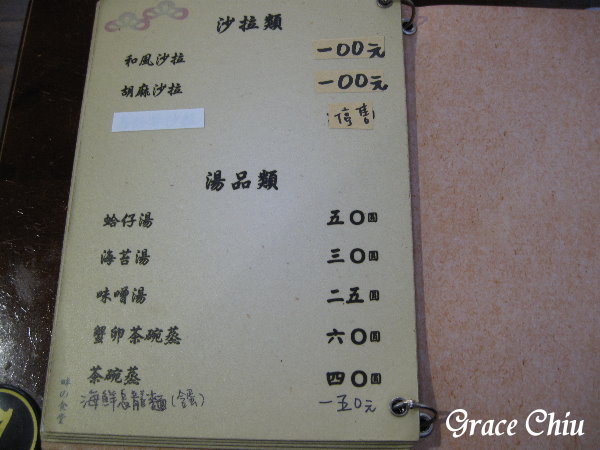 沙拉類
和風沙拉 一00元
胡麻沙拉 一00元
停售
湯品類
蛤仔湯 五〇圓
海苔湯 三〇圓
味噌湯 二五圓
蟹卵茶碗蒸 六〇圓
茶碗蒸 四〇圓
海鮮烏龍麵(含蛋) 一五0元
味の食堂
Grace Chiu